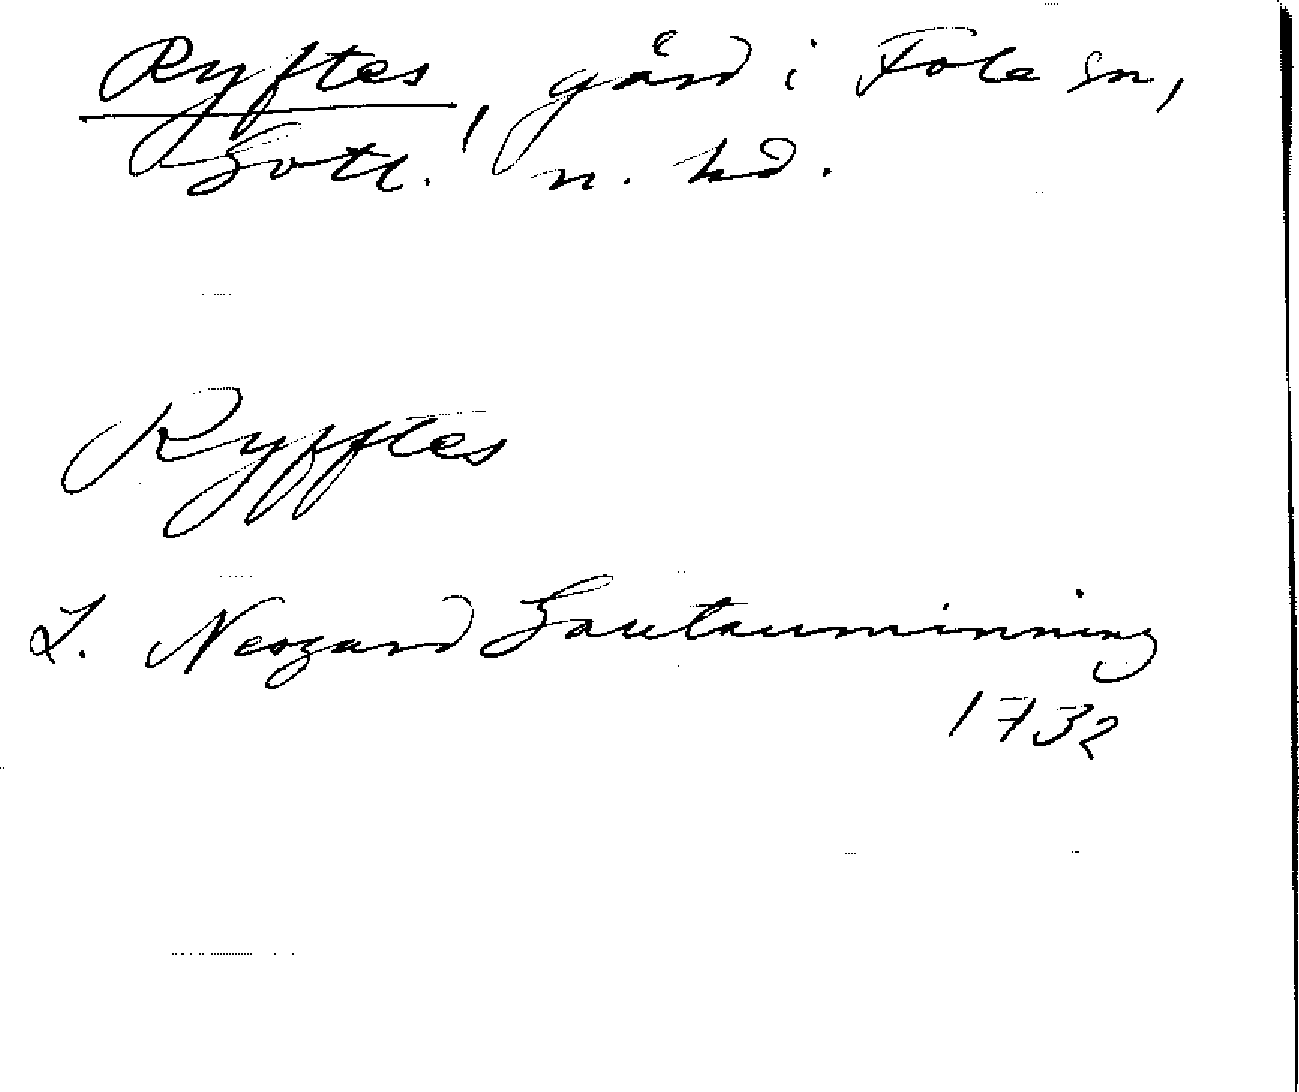 Ryftes, gård i Fole sn,
Gotl. n. hd.
Ryfftes
L. Neogard Gautauminning
1732